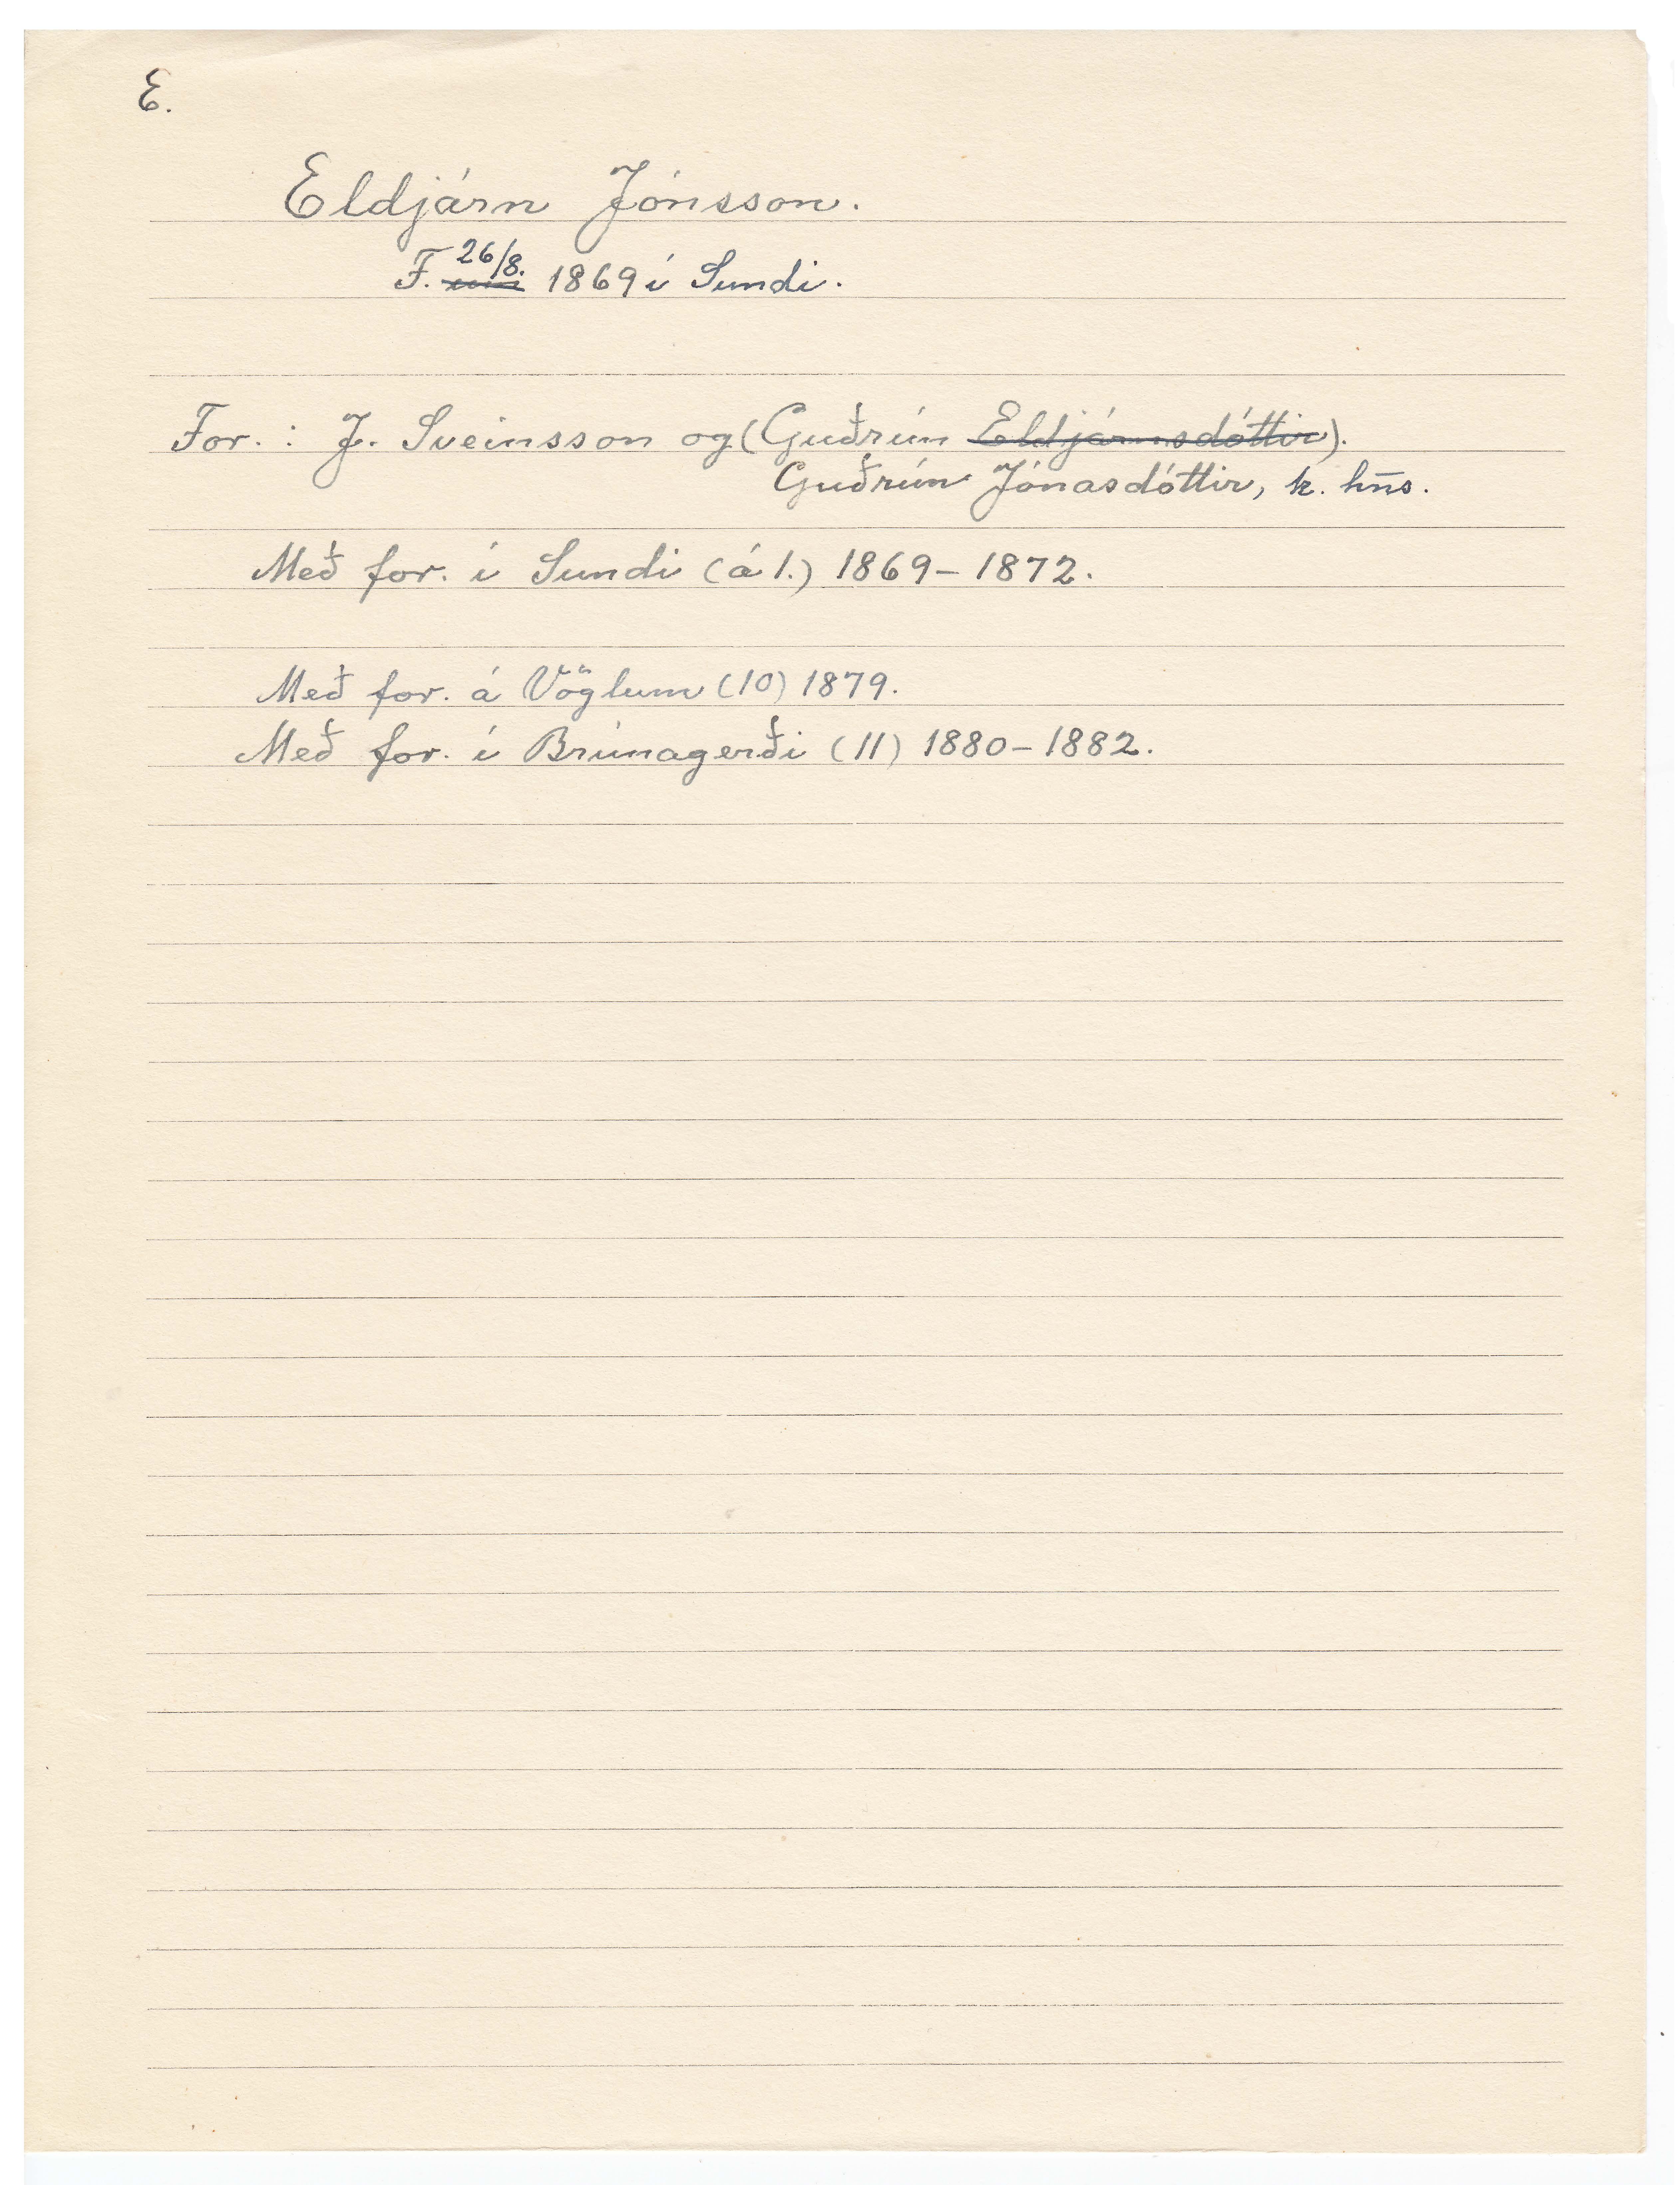 E.
Eldjárn Jónsson.
F. um 26/8. 1869 í Sundi.
For. : J. Sveinsson og (Guðrún Eldjárnsdóttir).
Guðrún Jónasdóttir, k. hn̄s.
Með for. í Sundi (á 1.) 1869-1872.
Með for. á Vöglum (10) 1879.
Með for. í Brúnagerði (11) 1880-1882.